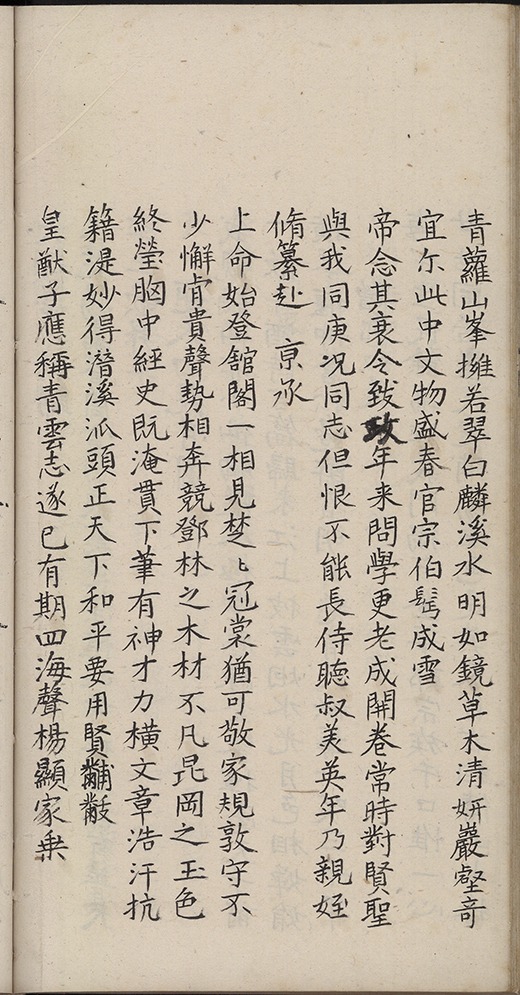 青蘿山峯擁若翠白麟溪水明如鏡草木清妍巖壑奇
宜尓此中文物盛春官宗伯髩成雪
帝念其衰令致政年来問學更老成開卷常時對賢聖
與我同庚况同志但恨不能長侍聽叔美英年乃親姪
脩纂赴 京承
上命始登舘閣一相見楚〻冠裳猶可敬家規敦守不
少懈肯貴聲勢相奔競鄧林之木材不凡昆岡之玉色
終瑩胸中經史既淹貫下筆有神才力橫文章浩汗抗
籍湜妙得潛溪派頭正天下和平要用賢黼黻
皇猷子應稱青雲志遂已有期四海聲楊顯家乗